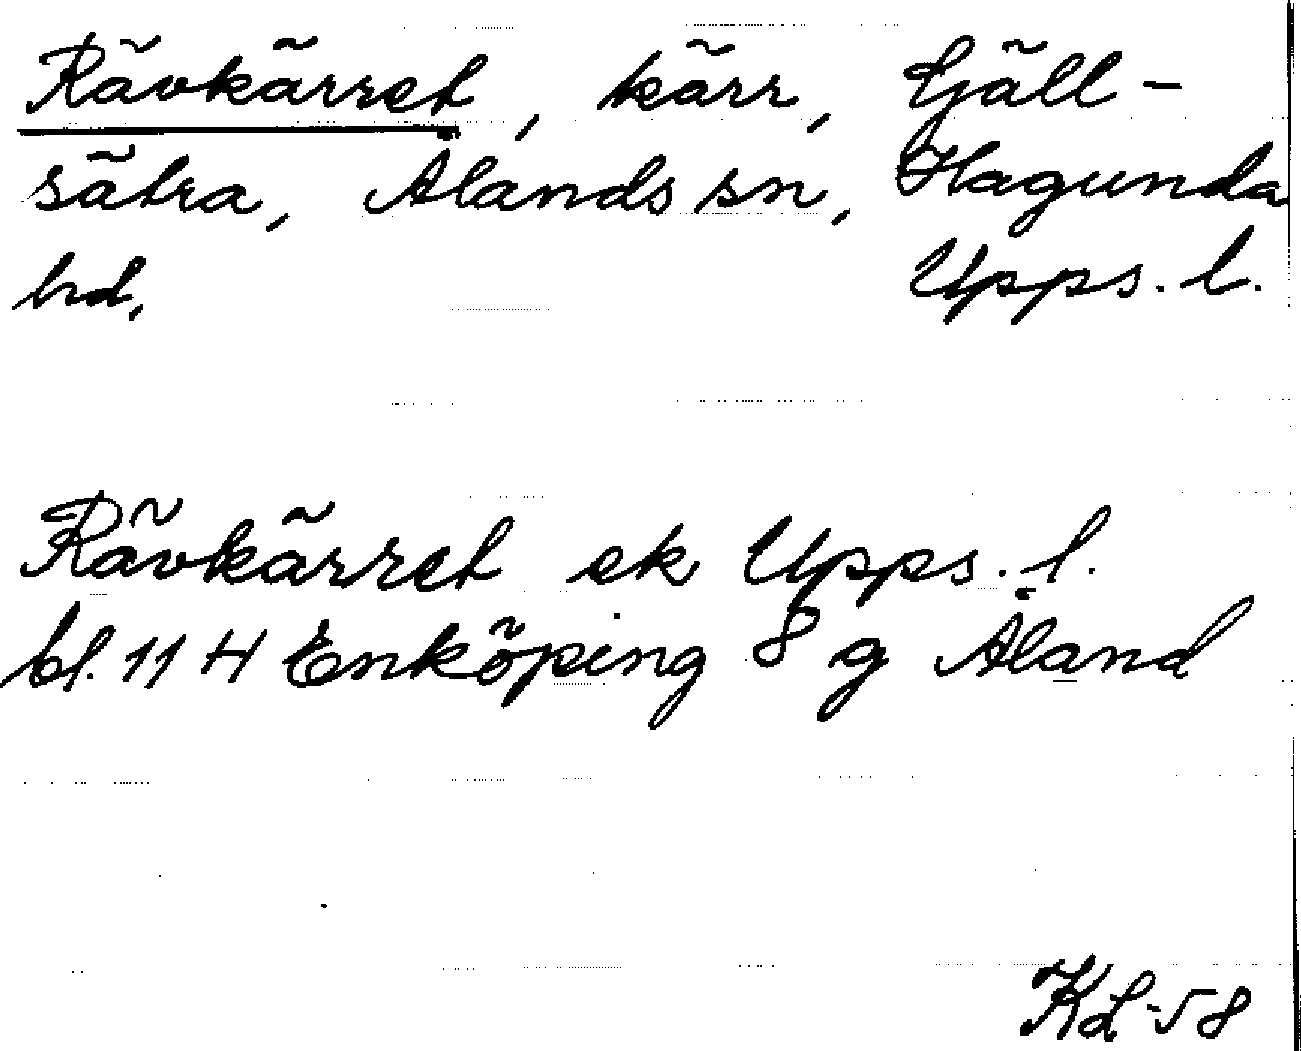 Rävkärret, kärr, Fjäll-
sätra, Ålands sn, Hagunda
hd, Upps. l.
Rävkärret ek Upps. l.
bl. 11 H Enköping 8 g Åland
KL-58